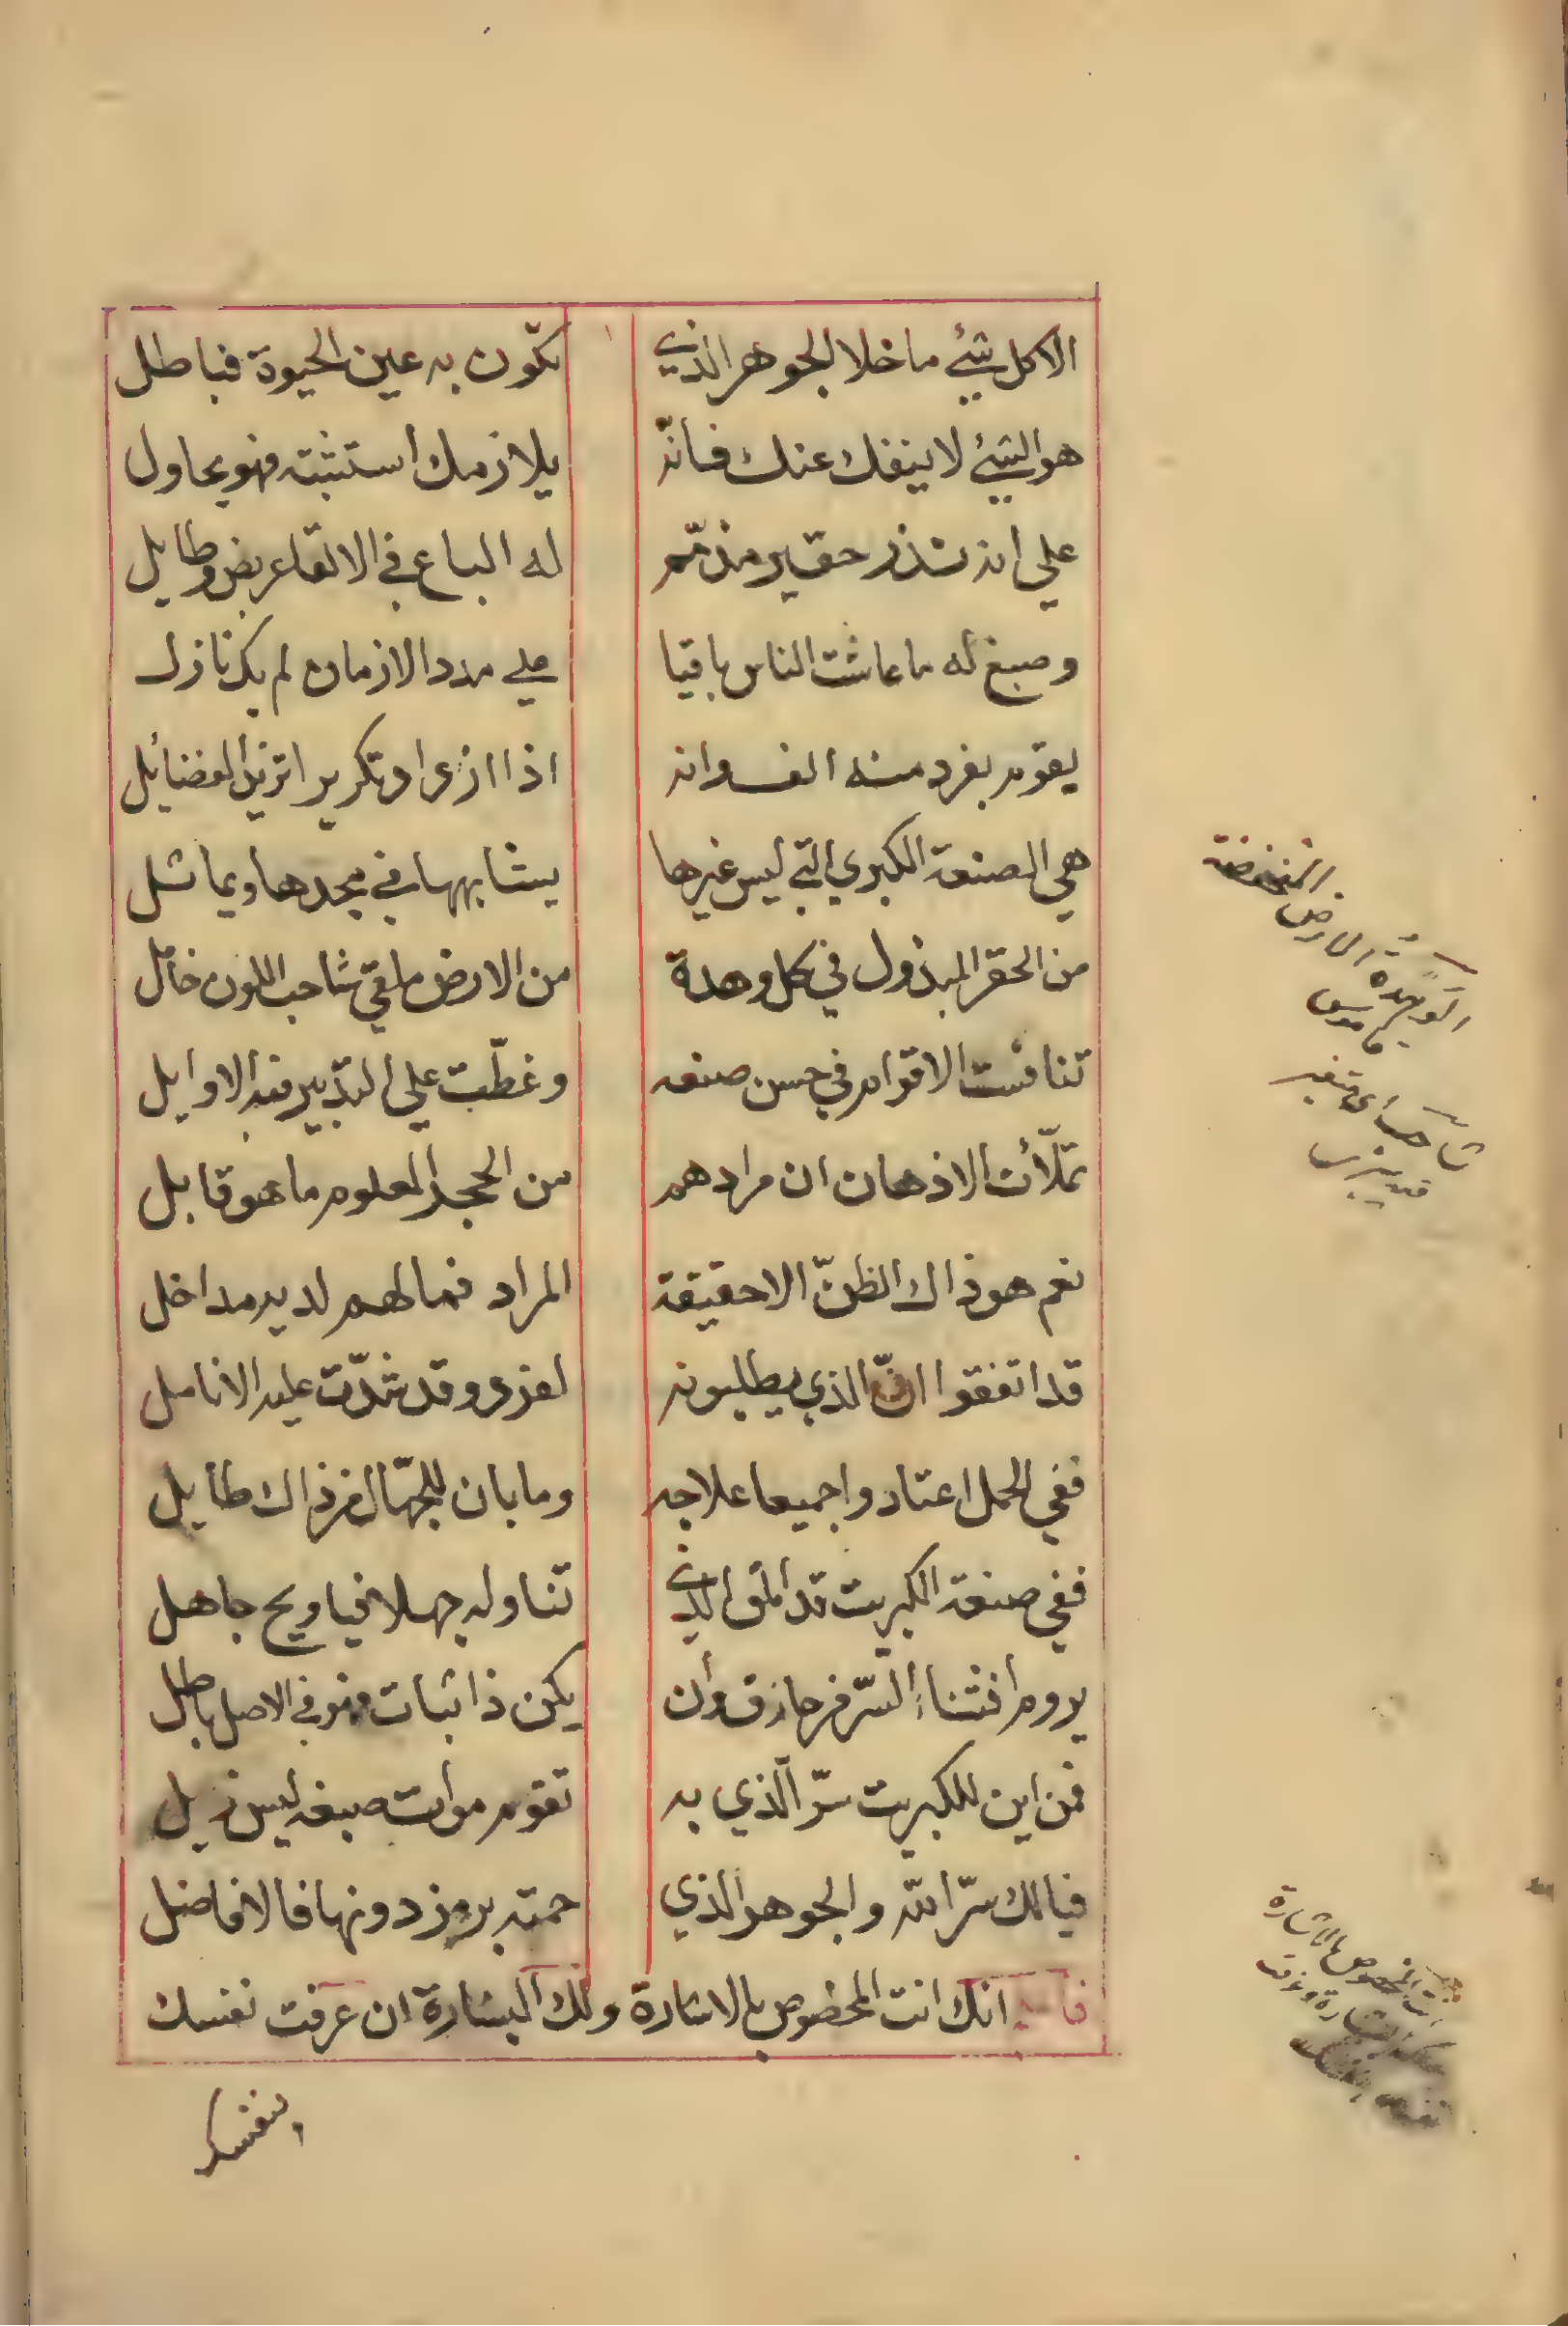 الا كل شيئ ما خلا الجوهر الذي تكّون به عين الحيوة فباطل
هو الشيئ لا ينفك عنك فانّه يلازمك استثبته فهو يحاول
علي انه نذر حقير مذمّم له الباع في الالقا عريض وطايل
وصبغ له ما عاشت الناس باقيا علي مدد الازمان لم يك نازل
يقوم بفرد منه الف وانه اذا ازداد تكريرا تزيد الفضائل
هي الصنعة الكبري التي ليس غيرها يشابهها في مجدها ويماثل
من الحقر المبذول في كل وهدة من الارض ملقي شاحب اللون خامل
تنافست الاقوام في حسن صنعه وغطّت علي التدبير فيه الاوايل
تملّأت الاذهان ان مرادهم من الحجر المعلوم ما هو قابل
نعم هو ذاك الظنّ الا حقيقة المراد فما لهم لديه مداخل
قد اتفقوا انّ الذي يطلبونه لفزي وقد شدّت عليه الانامل
ففي الحمل اعتادوا جميعا علاجه وما بان للجهّال من ذاك طايل
ففي صنعة الكبريت قد الذي تناوله جهلا فيا ويح جاهل
يروم افشاء السّر من حاذق وان يكن ذا ثبات فهو في الاصل باطل
فمن اين للكبريت سرّ الذي به تقوم موات صبغه ليس زيل
فيالك سرّ الله والجوهر الذي حمته برمز دونها فالافاضل
انك انت المخصوص بالاشارة ولك البشارة ان عرفت نفسك
بنفسك
الوهدة الارض المنخفضة
قاموس
شاحب اي متغير
انت المخصوص بالاشارة